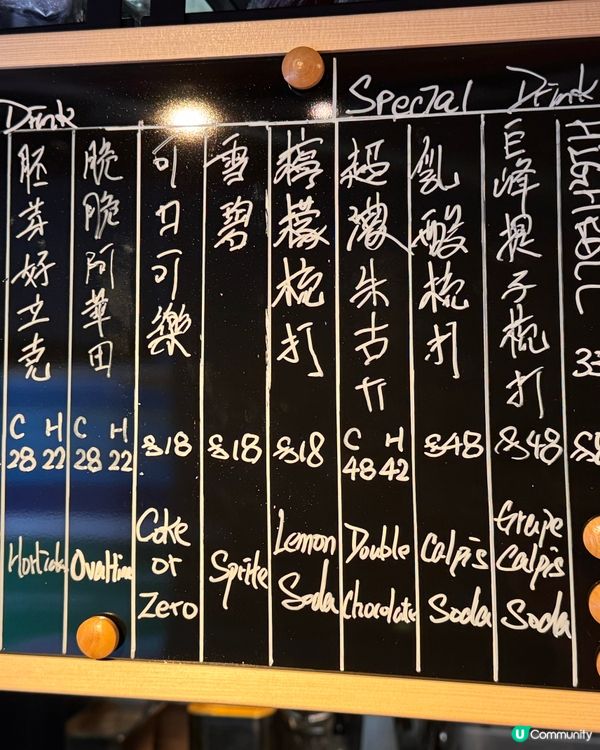 Drink
Special Drink
胚芽好立克
C H
28 22
Horlicks
脆脆阿華田
C H
28 22
Ovaltine
可口可樂
$18
Coke
or
Zero
雪碧
$18
Sprite
檸檬梳打
$18
Lemon
Soda
超濃朱古力
C H
48 42
Double
Chocolate
乳酸梳打
$48
Calpis
Soda
巨峰提子梳打
$48
Grape
Calpis
Soda
HIGHBALL
33
U Community